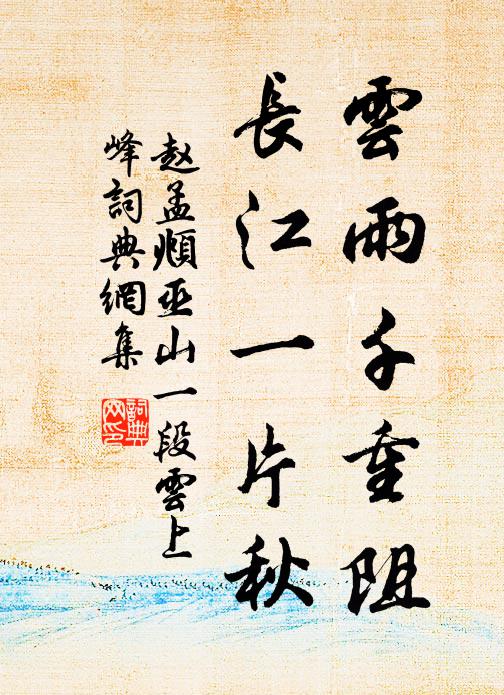 雲雨千重阻
長江一片秋
赵孟頫巫山一段雲上
峰詞典網集
詞典网印